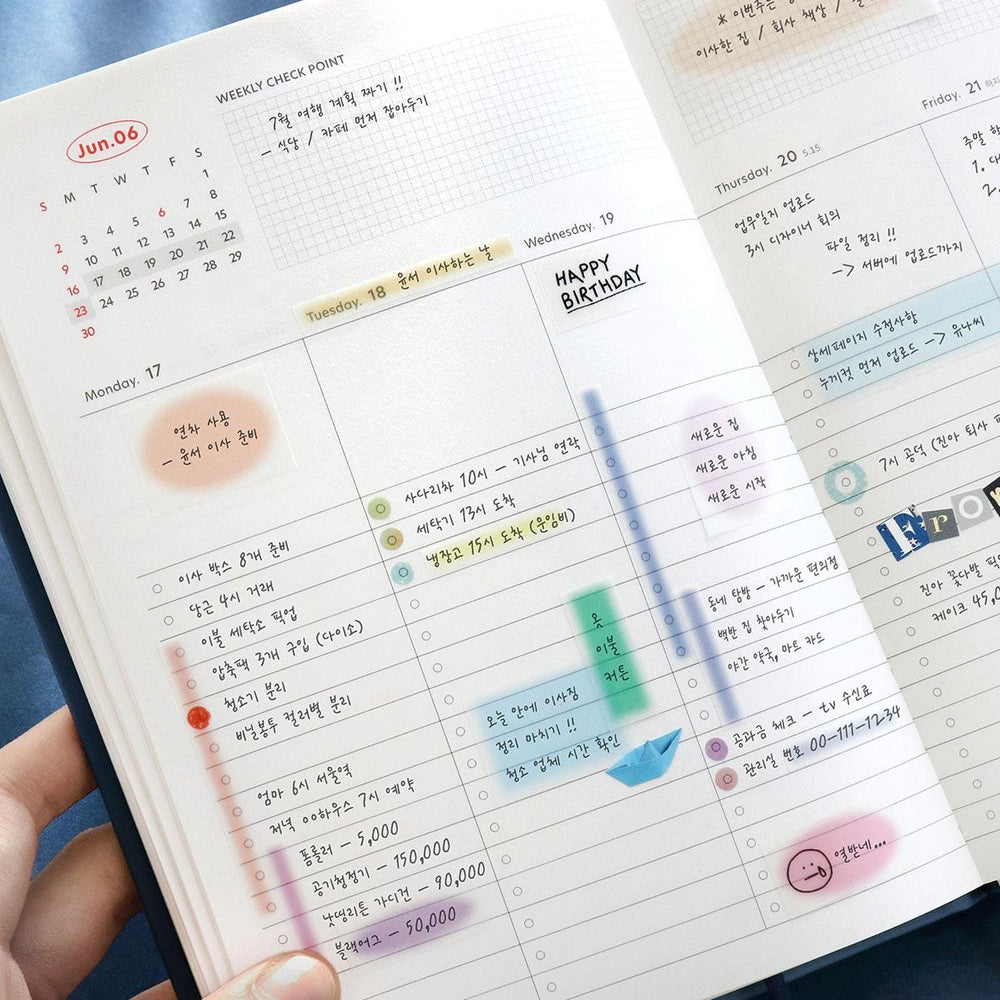 WEEKLY CHECK POINT
7월 여행 계획 짜기 !!
– 식당 / 카페 먼저 잡아두기
Jun.06
S M T W T F S
1
2 3 4 5 6 7 8
9 10 11 12 13 14 15
16 17 18 19 20 21 22
23 24 25 26 27 28 29
30
Monday. 17
연차 사용
– 윤서 이사 준비
이사 박스 8개 준비
당근 4시 거래
이불 세탁소 픽업
압축팩 3개 구입 (다이소)
청소기 분리
비닐봉투 컬러별 분리
엄마 6시 서울역
저녁 00하우스 7시 예약
폼롤러 – 5,000
공기청정기 – 150,000
낫띵리튼 가디건 – 90,000
블랙어그 – 50,000
Tuesday. 18 윤서 이사하는 날
사다리차 10시 – 기사님 연락
세탁기 13시 도착
냉장고 15시 도착 (운임비)
옷
이불
커튼
오늘 안에 이사짐
정리 마치기 !!
청소 업체 시간 확인
Wednesday. 19
HAPPY
BIRTHDAY
새로운 집
새로운 아침
새로운 시작
동네 탐방 – 가까운 편의점
백반 집 찾아두기
야간 약국, 마트 카드
공과금 체크 – tv 수신료
관리실 번호 00-111-1234
열받네...
※ 이번주는
이사한 집 / 회사 책상 /
Thursday. 20 5.15
업무일지 업로드
3시 디자이너 회의
파일 정리 !!
–> 서버에 업로드까지
상세페이지 수정사항
누끼컷 먼저 업로드 –> 유나씨
7시 공덕 (진아 퇴사
From
진아 꽃다발 픽업
케이크 45,0
Friday. 21 하지
주말
1.
2.